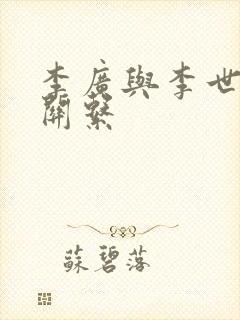 李廣與李世
關繫
蘇碧落